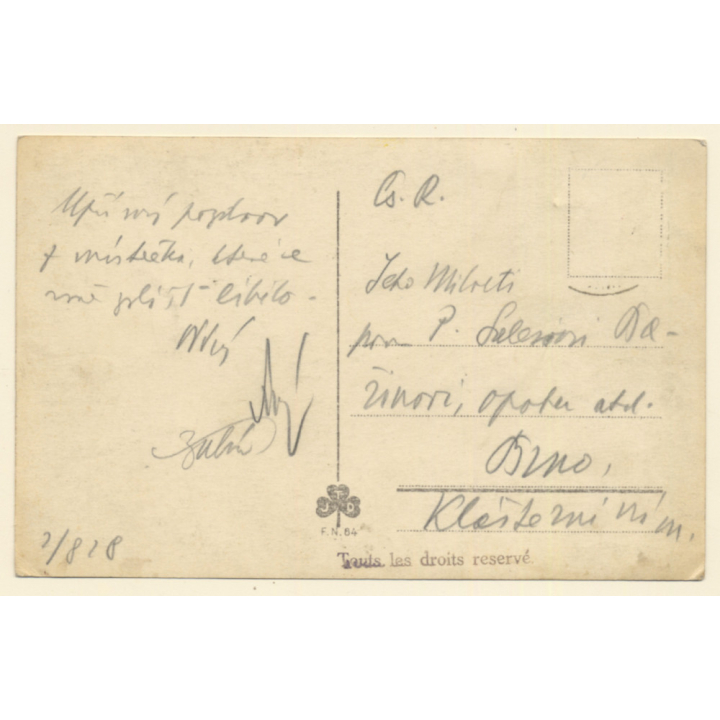 Upřímný pozdrav
z místečka, které se
mně zvlášť líbilo -
Čs. R.
Jeho Milosti
pan P. Salesius Ba-
řinovi, opatu atd.
Brno,
Klášterní nám.
2/8 28
J T O
F. N. 64
Touls les droits reservé